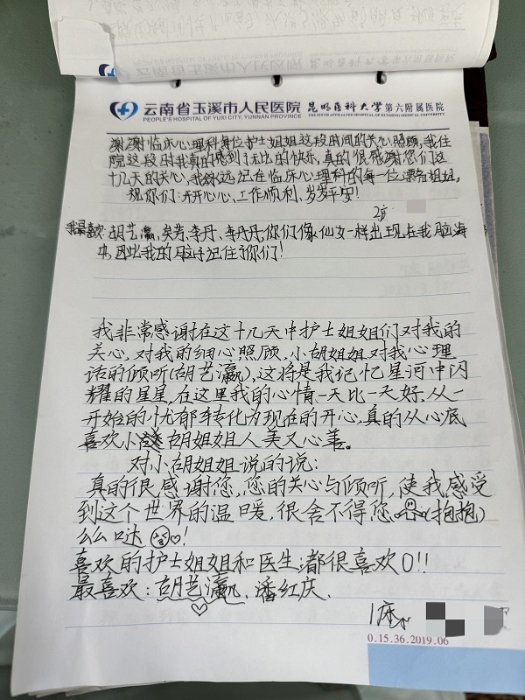 云南省玉溪市人民医院 昆明医科大学第六附属医院
PEOPLE'S HOSPITAL OF YUXI CITY, YUNNAN PROVINCE
谢谢临床心理科每位护士姐姐这段时间的关心照顾,我住
院这段时我真的感到了无比的快乐,真的很感谢您们这
十几天的关心,我永远记在临床心理科的每一位漂亮姐姐,
祝你们:开开心心,工作顺利,岁岁平安!
我最喜欢:胡艺瀛,李丹,你们像仙女一样出现在我脑海
中,因此我的脑子记住了你们!
我非常感谢在这十几天中护士姐姐们对我的
关心,对我的细心照顾,小胡姐姐对我心理
话的倾听(胡艺瀛),这将是我记忆星河中闪
耀的星星,在这里我的心情一天比一天好,从一
开始的忧郁转化为现在的开心,真的从心底
喜欢小胡姐姐人美又心善。
对小胡姐姐说的说:
真的很感谢您,您的关心与倾听,使我感受
到这个世界的温暖,很舍不得您(抱抱)
么么哒!
喜欢的护士姐姐和医生:都很喜欢O!!
最喜欢:胡艺瀛,潘红庆.
1床
0.15.36.2019.06